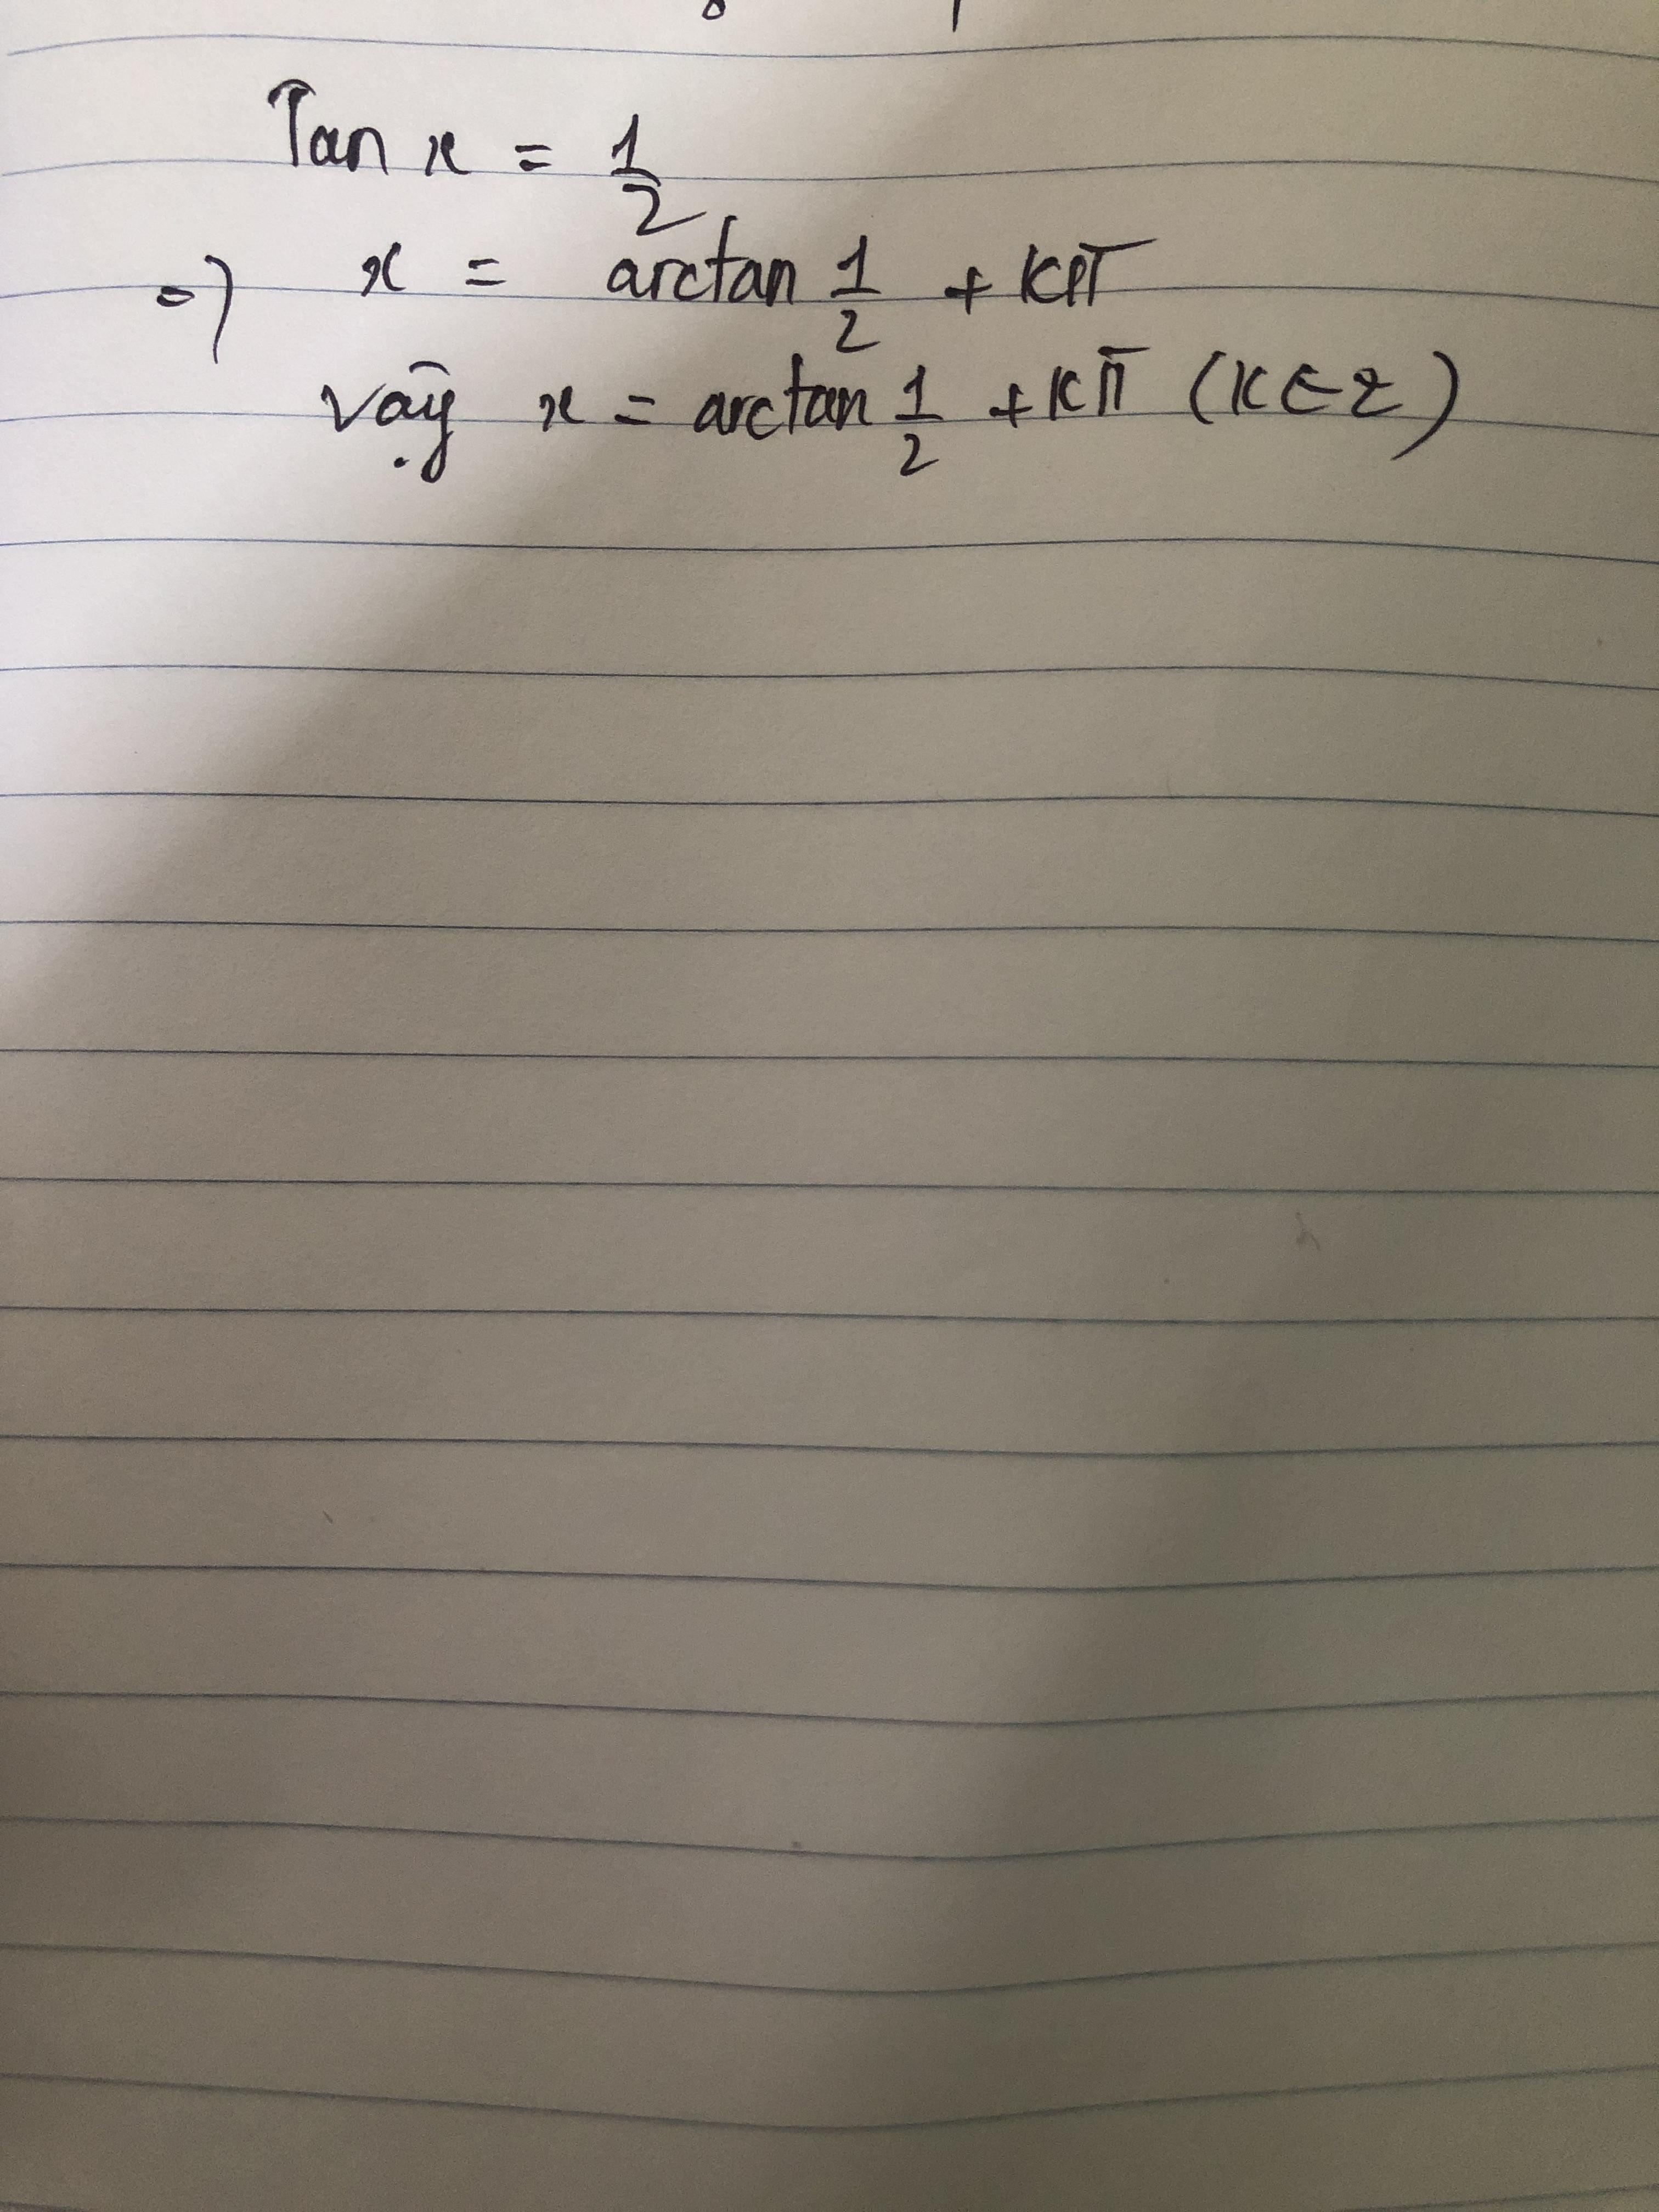 Tan x = 1/2
=) x = arctan 1/2 + Kπ
vậy x = arctan 1/2 + Kπ (K ∈ Z)